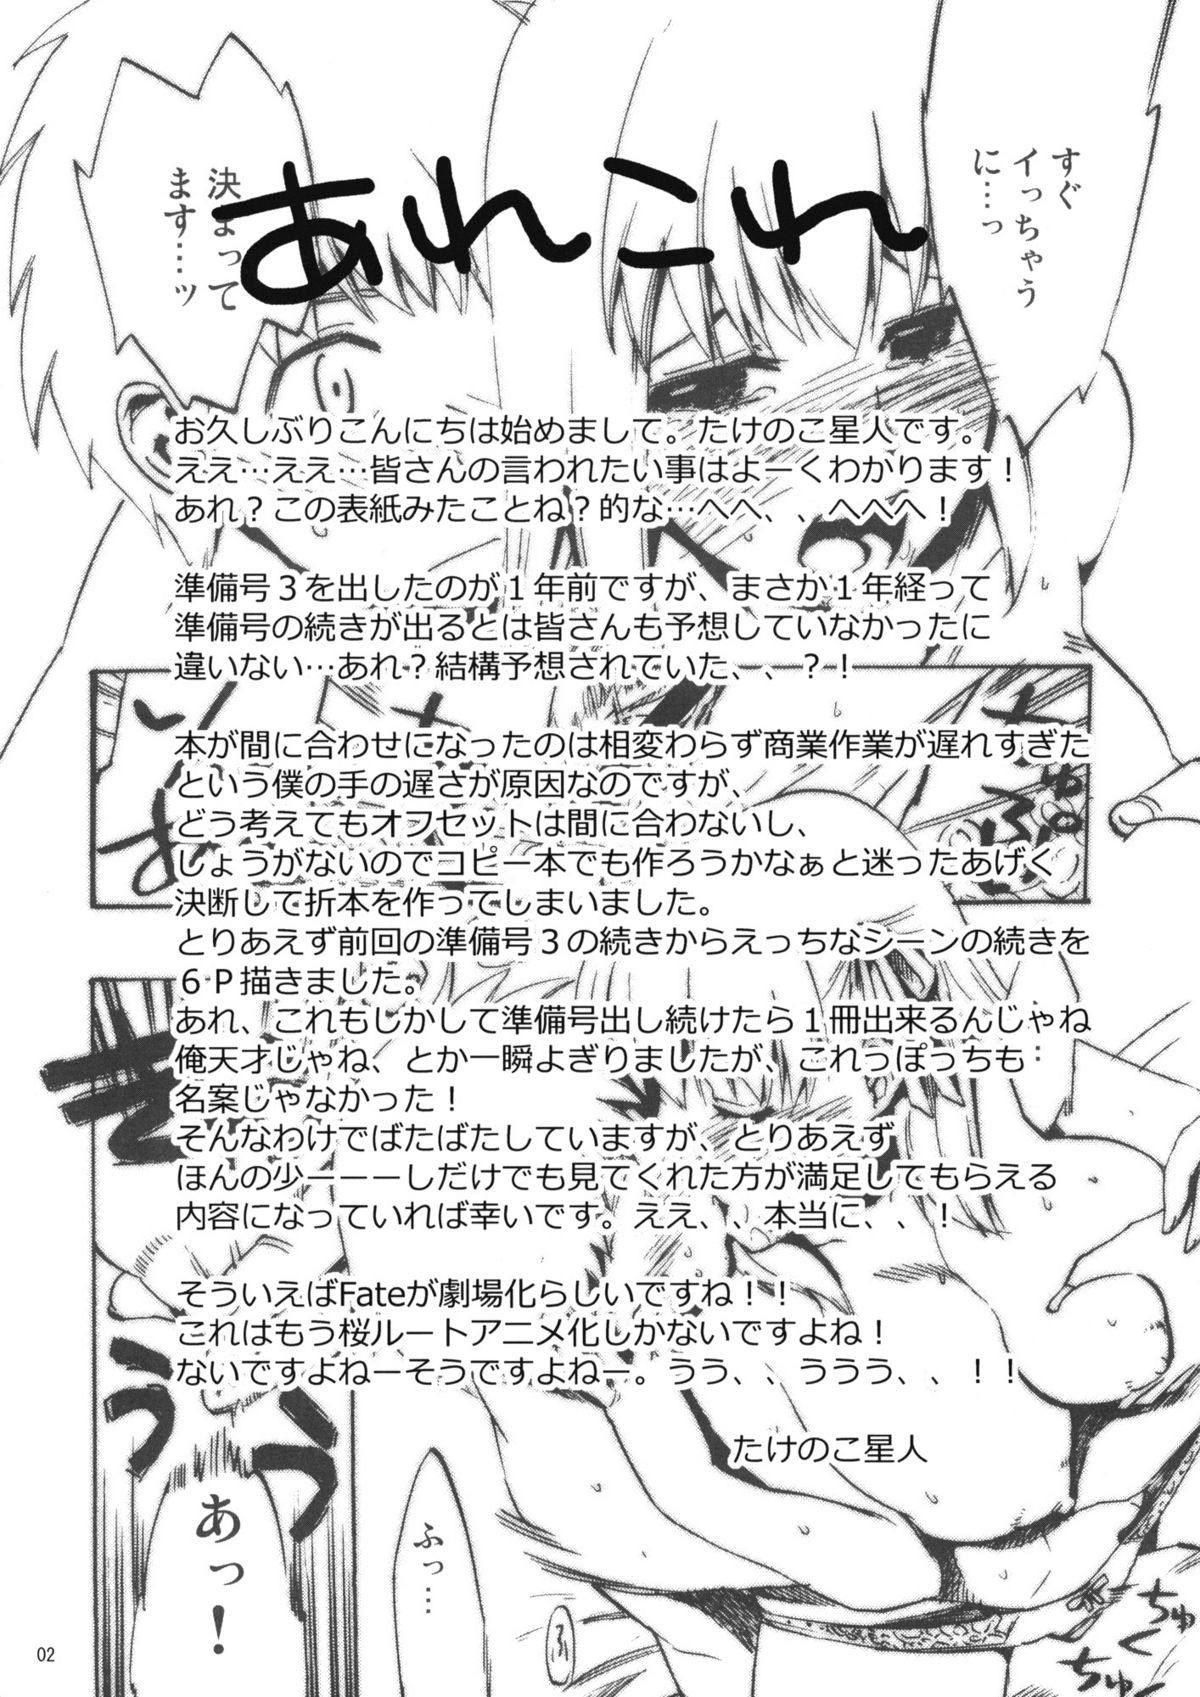 あれこれ
すぐ
イっちゃう
に…っ
決まって
ます…ッ
お久しぶりこんにちは始めまして。たけのこ星人です。
ええ…ええ…皆さんの言われたい事はよーくわかります！
あれ？この表紙みたことね？的な…へへ、、へへへ！
準備号３を出したのが１年前ですが、まさか１年経って
準備号の続きが出るとは皆さんも予想していなかったに
違いない…あれ？結構予想されていた、、？！
本が間に合わせになったのは相変わらず商業作業が遅れすぎた
という僕の手の遅さが原因なのですが、
どう考えてもオフセットは間に合わないし、
しょうがないのでコピー本でも作ろうかなぁと迷ったあげく
決断して折本を作ってしまいました。
とりあえず前回の準備号３の続きからえっちなシーンの続きを
６Ｐ描きました。
あれ、これもしかして準備号出し続けたら１冊出来るんじゃね
俺天才じゃね、とか一瞬よぎりましたが、これっぽっちも
名案じゃなかった！
そんなわけでばたばたしていますが、とりあえず
ほんの少ーーーしだけでも見てくれた方が満足してもらえる
内容になっていれば幸いです。ええ、、本当に、、！
そういえばFateが劇場化らしいですね！！
これはもう桜ルートアニメ化しかないですよね！
ないですよねーそうですよねー。うう、、ううう、、！！
たけのこ星人
うう
あっ！
ふっ…
ちゅく
ちゅく
02